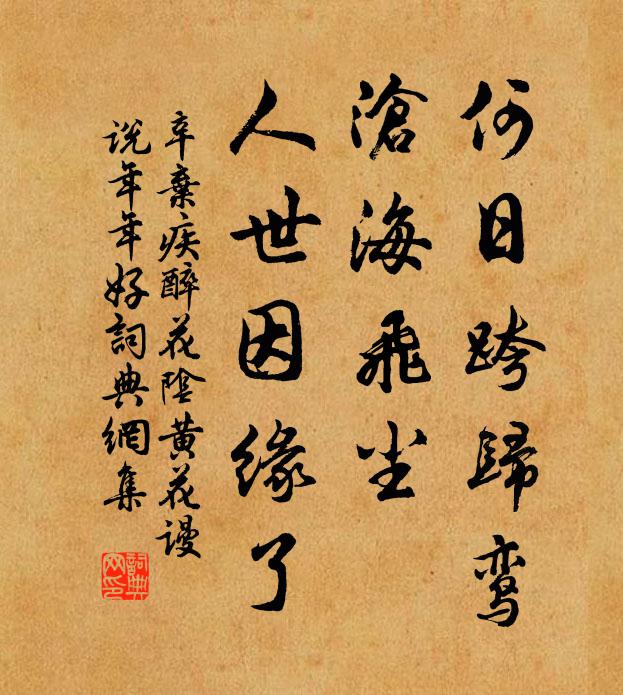 何日跨歸鸾
滄海飛尘
人世因緣了
辛棄疾醉花陰黄花谩
说年年好詞典網集
詞典
网印